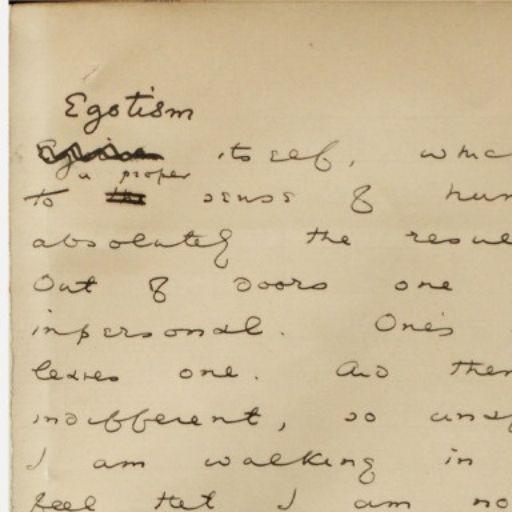 Egotism
itself, whic
a proper
to the sense of hum
absolutely the resul
Out of doors one
inpersonal. One's
leaves one. And then
indifferent, so unsy
I am walking in
feel that I am no